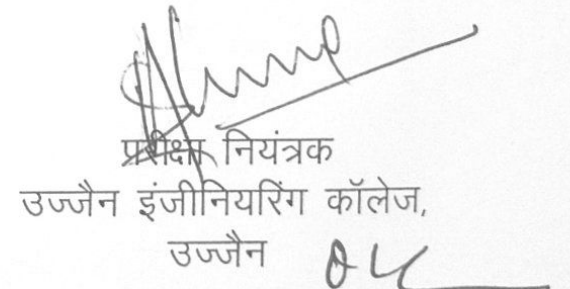 परीक्षा नियंत्रक
उज्जैन इंजीनियरिंग कॉलेज,
उज्जैन